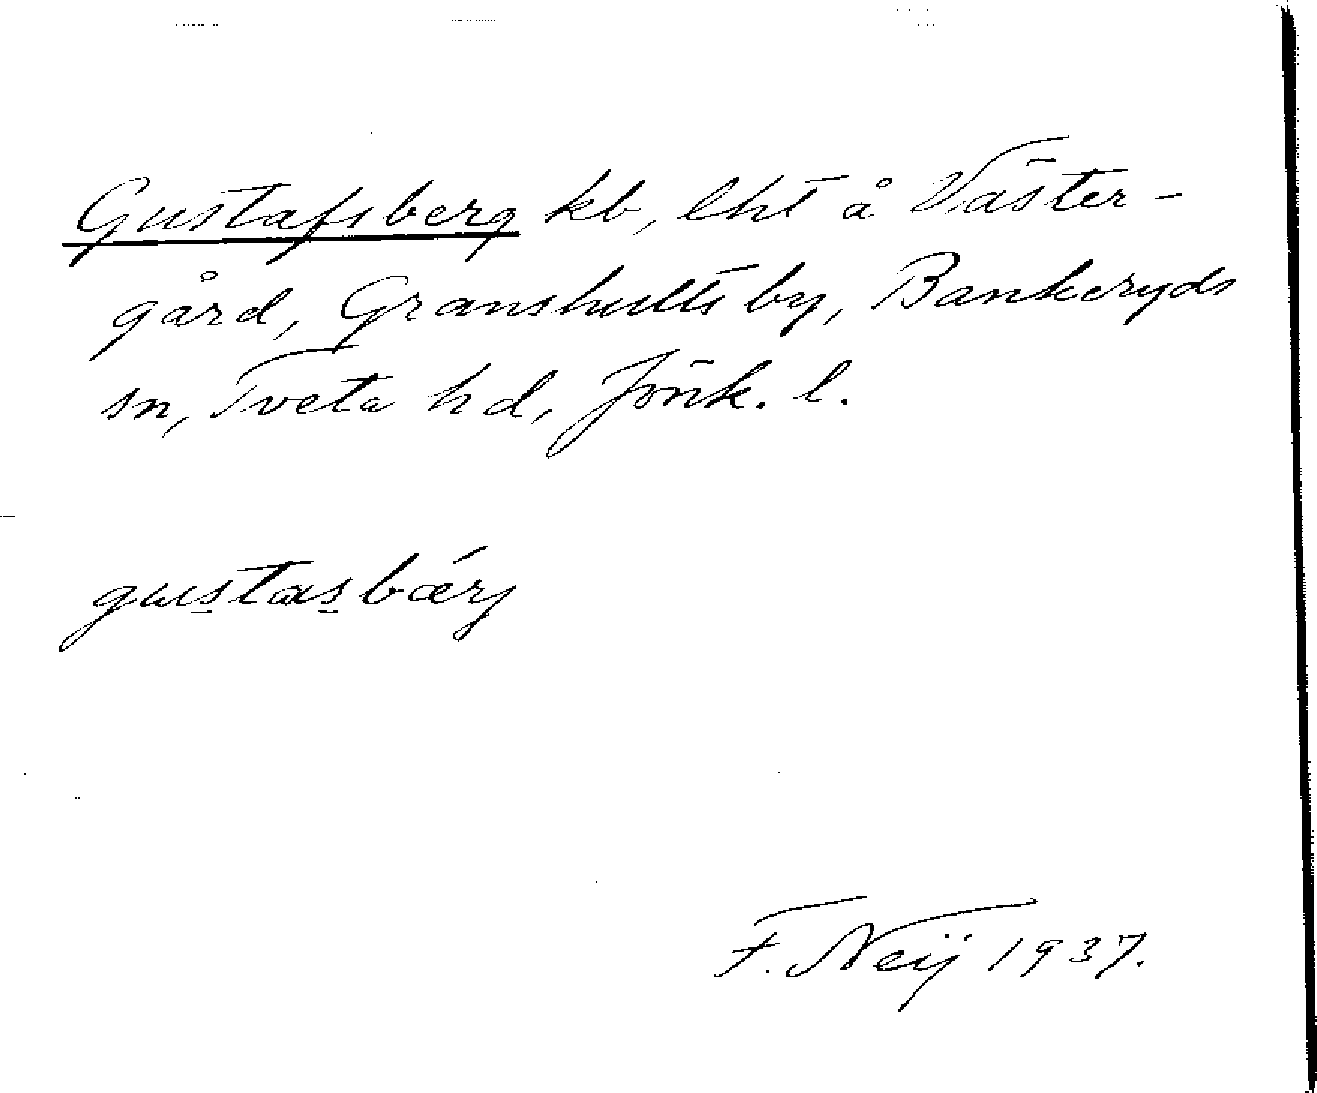 Gustafsberg kb, lht å Väster-
gård, Granshults by, Bankeryds
sn, Tveta hd, Jönk. l.
gustasbærj
F. Neij 1937.